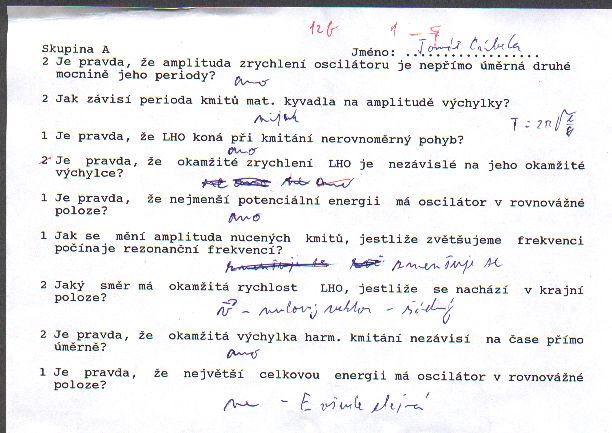 12b 1 -
Skupina A
Jméno: Tomáš
2 Je pravda, že amplituda zrychlení oscilátoru je nepřímo úměrná druhé
mocnině jeho periody?
ano
2 Jak závisí perioda kmitů mat. kyvadla na amplitudě výchylky?
nijak
T = 2π√l/g
1 Je pravda, že LHO koná při kmitání nerovnoměrný pohyb?
ano
2 Je pravda, že okamžité zrychlení LHO je nezávislé na jeho okamžité
výchylce?
ano
1 Je pravda, že nejmenší potenciální energii má oscilátor v rovnovážné
poloze?
ano
1 Jak se mění amplituda nucených kmitů, jestliže zvětšujeme frekvenci
počínaje rezonanční frekvencí?
zmenšuje se
2 Jaký směr má okamžitá rychlost LHO, jestliže se nachází v krajní
poloze?
v⃗ - nulový vektor - žádný
2 Je pravda, že okamžitá výchylka harm. kmitání nezávisí na čase přímo
úměrně?
ano
1 Je pravda, že největší celkovou energii má oscilátor v rovnovážné
poloze?
ne - E všude stejná